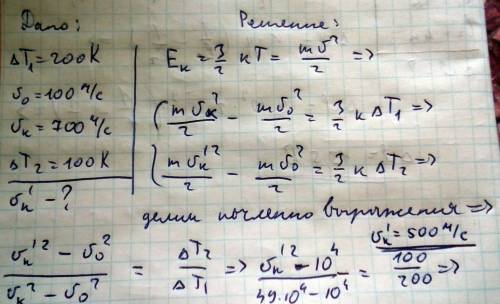 Дано: Решение:
ΔT₁ = 200 К
υ₀ = 100 м/с
υк = 700 м/с
ΔT₂ = 100 К
υк' - ?
Eк = 3/2 кT = mυ²/2 =>
( mυк²/2 - mυ₀²/2 = 3/2 к ΔT₁ =>
( mυк'²/2 - mυ₀²/2 = 3/2 к ΔT₂ =>
делим почленно выражения =>
(υк'² - υ₀²)/(υк² - υ₀²) = ΔT₂/ΔT₁ => (υк'² - 10⁴)/(49·10⁴ - 10⁴) = 100/200 =>
υк' = 500 м/с